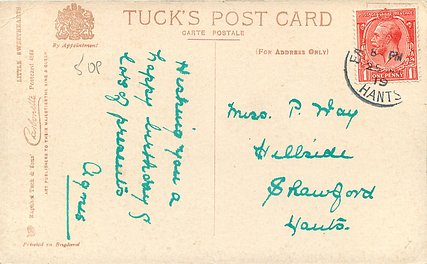 TUCK'S POST CARD
CARTE POSTALE
By Appointment
(FOR ADDRESS ONLY)
LITTLE SWEETHEARTS
Postcard
Raphael Tuck & Sons'
ART PUBLISHERS TO THEIR MAJESTIES THE KING & QUEEN
Printed in England
50p
Wishing you a
happy birthday &
lots of presents
Agnes
8 PM
19
HANTS
ONE PENNY
Miss. P. Way
Hillside
Shawford
Hants.